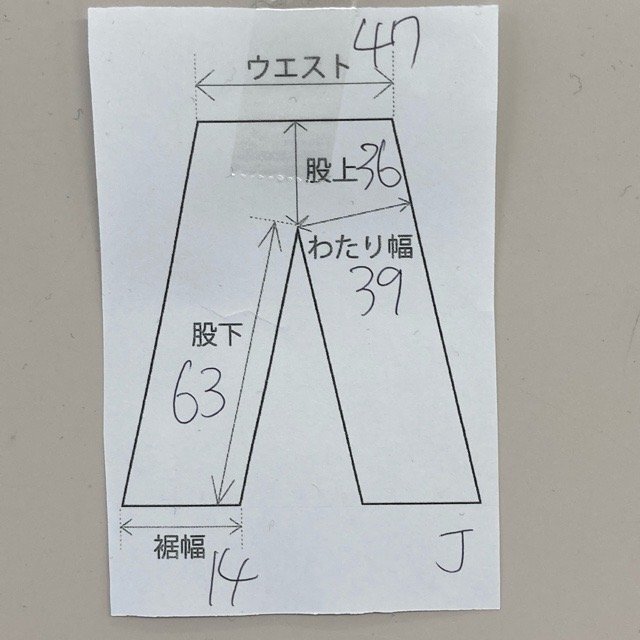 ウエスト 47
股上 36
わたり幅
39
股下
63
裾幅
14
J